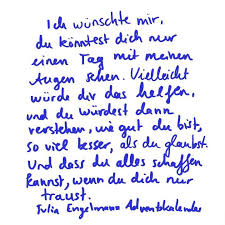 Ich wünschte mir,
du könntest dich nur
einen Tag mit meinen
Augen sehen. Vielleicht
würde dir das helfen,
und du würdest dann
verstehen, wie gut du bist,
so viel besser, als du glaubst.
Und dass du alles schaffen
kannst, wenn du dich nur
traust.
Julia Engelmann Adventkalender